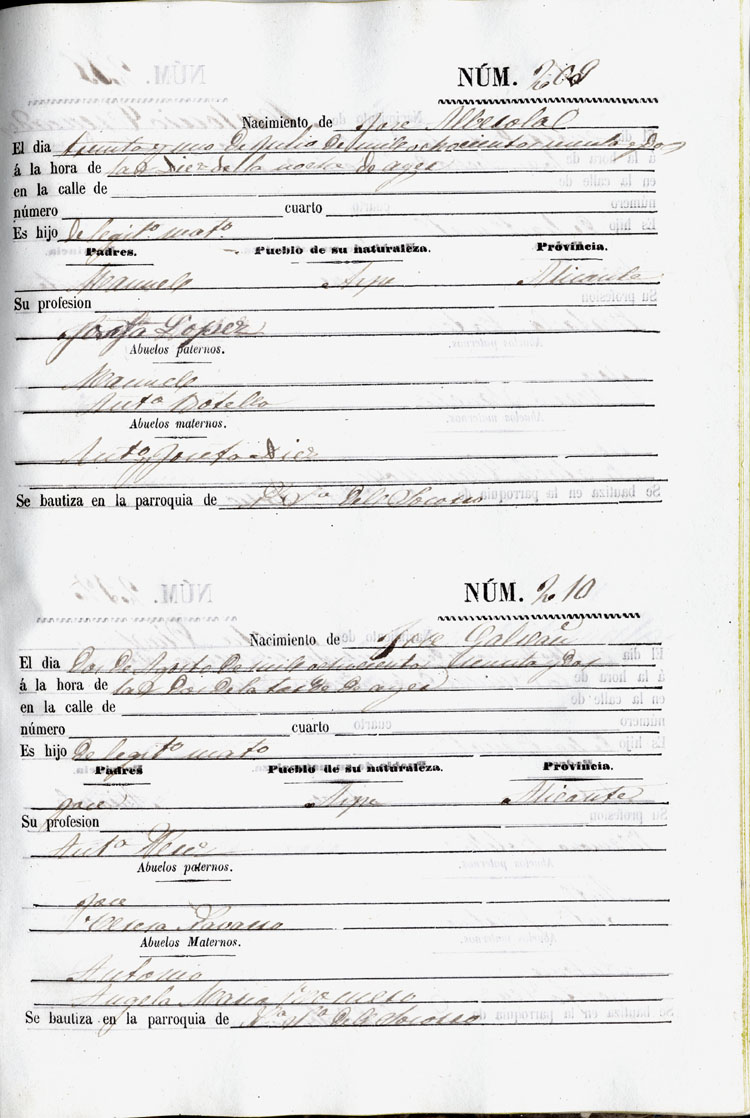 NÚM. 209
Nacimiento de Jose Alberola
El dia treinta y uno de Julio de mil ochocientos sesenta y dos
á la hora de las Diez de la noche de ayer
en la calle de
número cuarto
Es hijo de legitº. matº.
Padres. Pueblo de su naturaleza. Provincia.
Manuel Aspe Alicante
Su profesion
Josefa Lopez
Abuelos paternos.
Manuel
Antª Botella
Abuelos maternos.
Antº y Josefa Diez
Se bautiza en la parroquia de Nª Sª del Socorro
NÚM. 210
Nacimiento de Jose Galvañ
El dia Dos de Agosto de mil ochocientos sesenta y dos
á la hora de las Dos de la tarde de ayer
en la calle de
número cuarto
Es hijo de legitº matº
Padres Pueblo de su naturaleza. Provincia.
Jose Aspe Alicante
Su profesion
Antª
Abuelos paternos.
Jose
Teresa Navarro
Abuelos Maternos.
Antonio
Angela Maria
Se bautiza en la parroquia de Nª Sª del Socorro